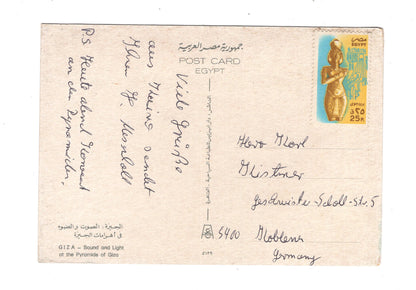 جمهورية مصر العربية
POST CARD
EGYPT
Viele Grüße
aus Kairo sendet
Ihr H.
P.S. Heute abend Konzert
an den Pyramiden.
الجيزة : الصوت والضوء
فى أهرامات الجيزة
GIZA – Sound and Light
at the Pyramids of Giza
مصر
EGYPT
25 P.
Herrn Karl
Geschwister-Scholl-Str. 5
5400 Koblenz
Germany